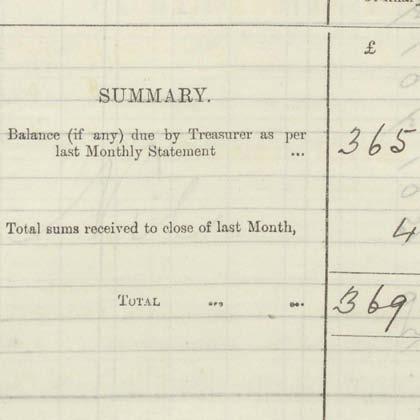 £
SUMMARY.
Balance (if any) due by Treasurer as per
last Monthly Statement ... 365
Total sums received to close of last Month, 4
TOTAL ... ... 369